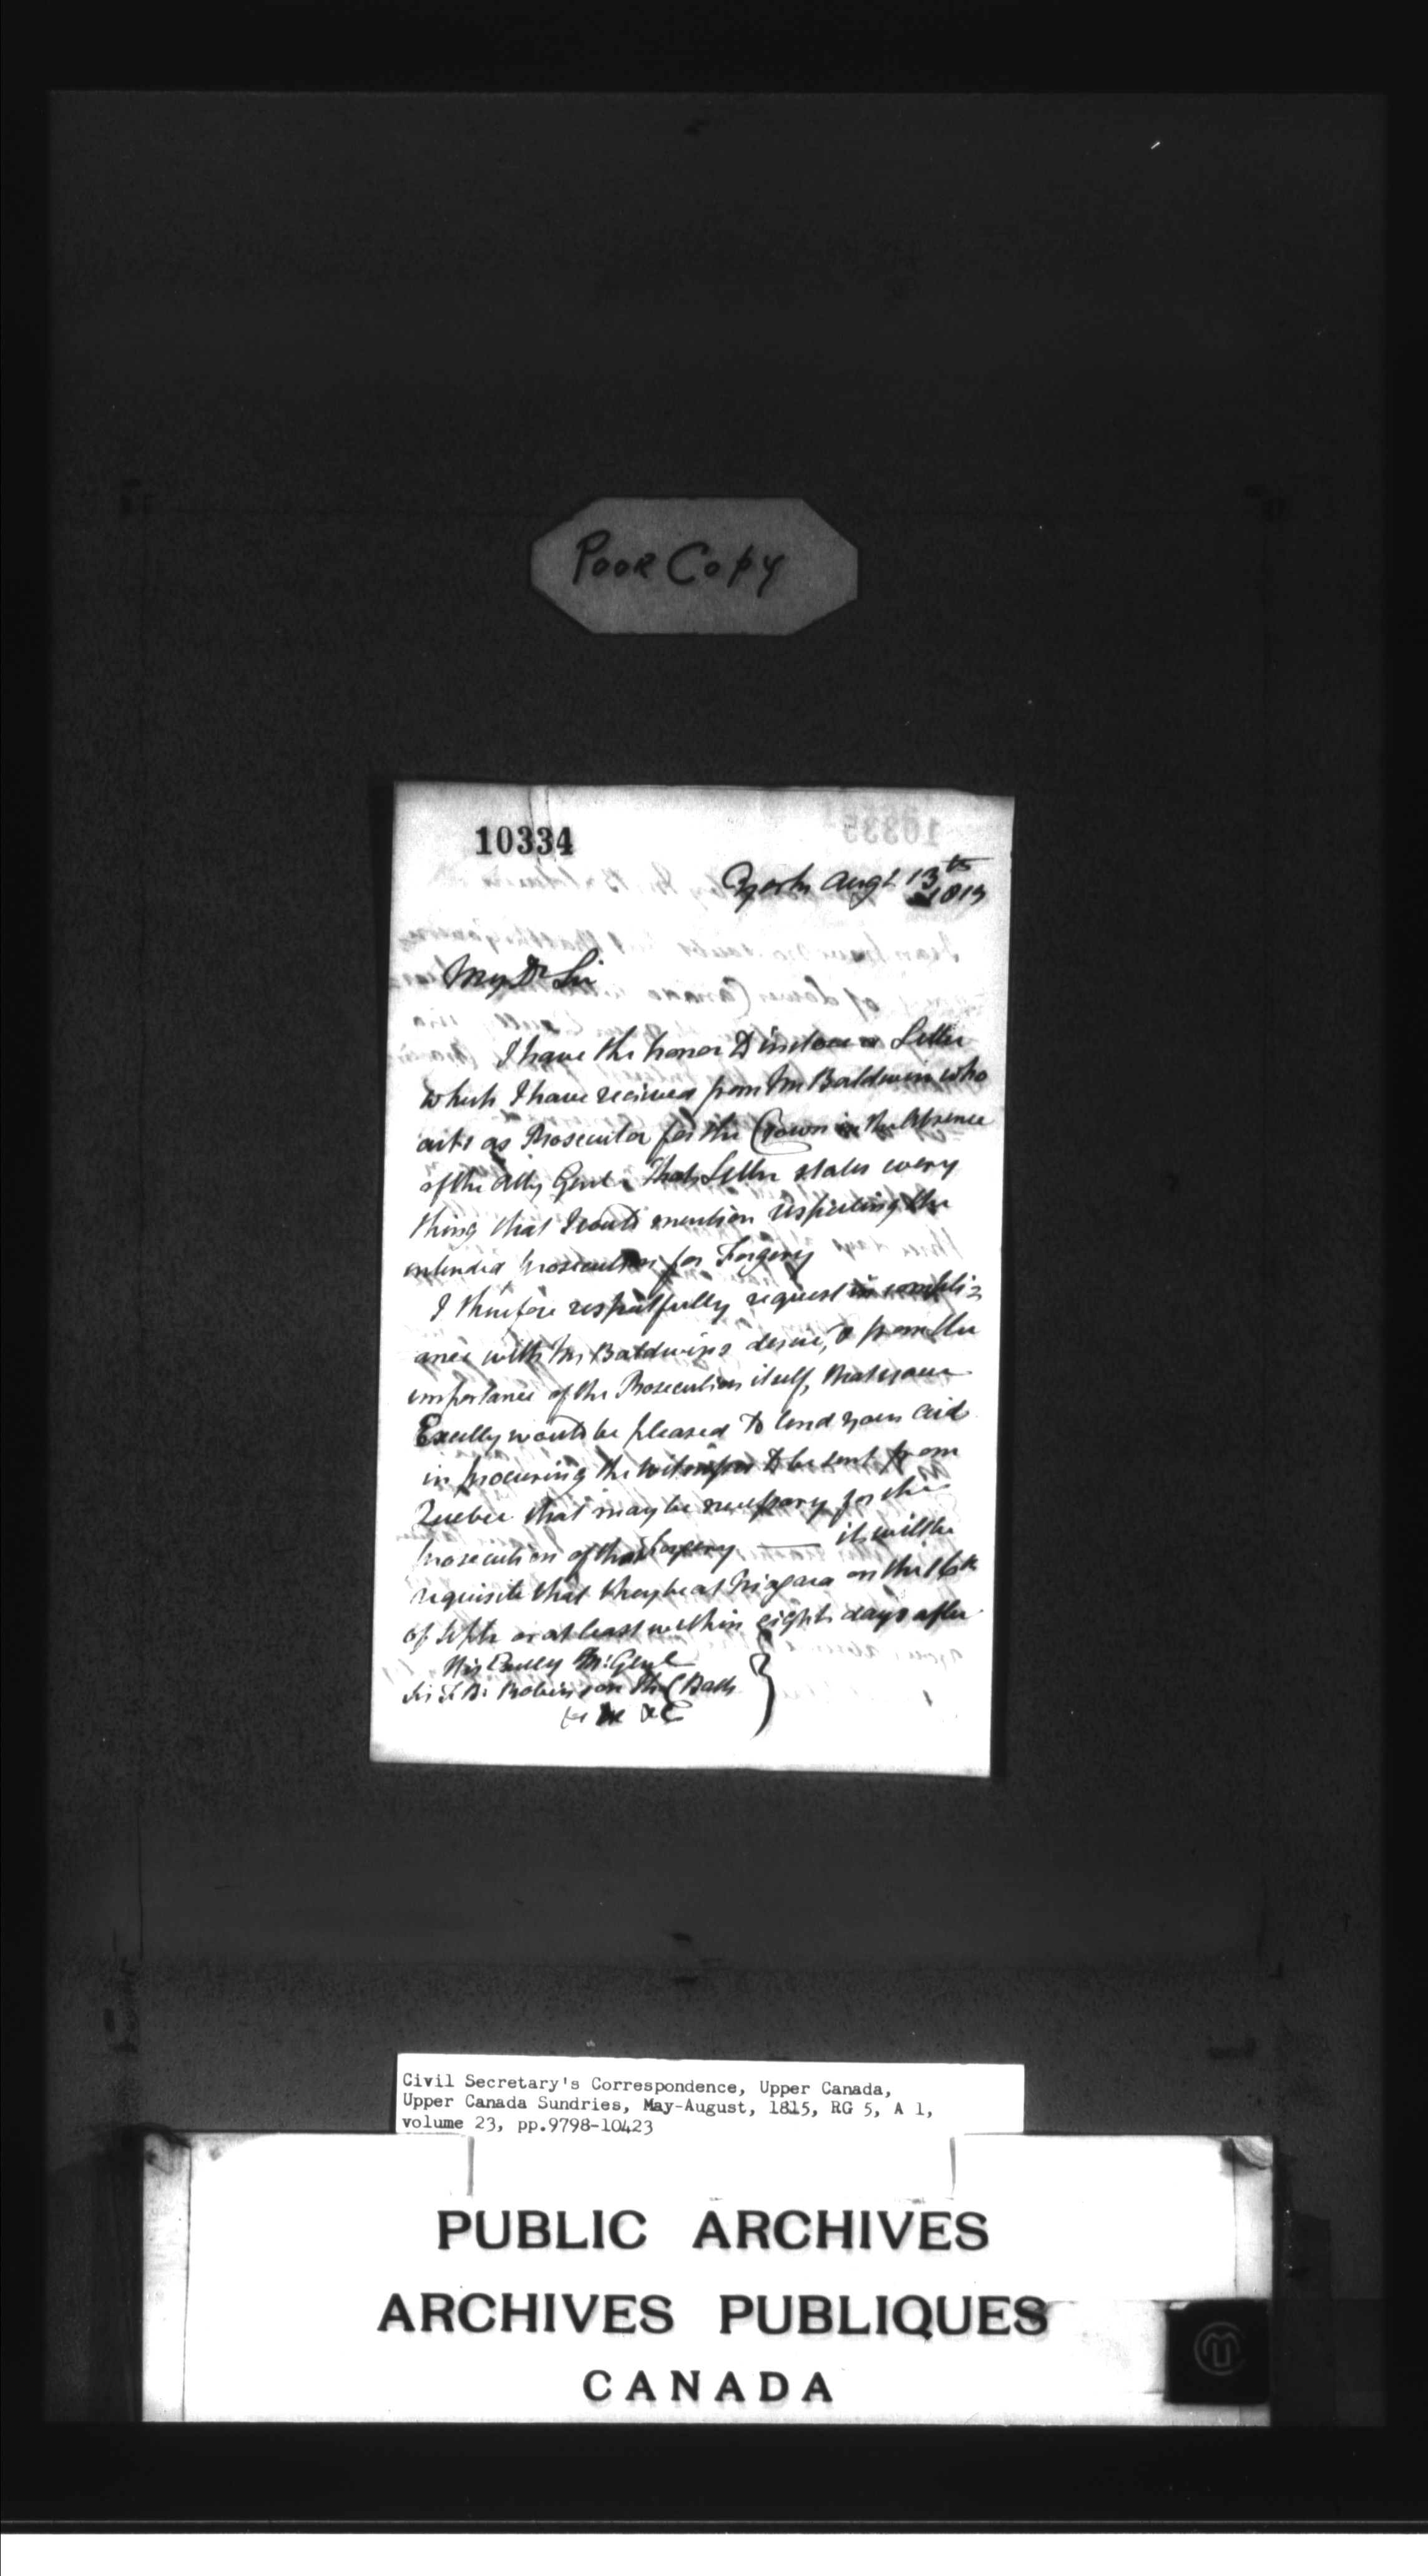 Poor Copy
10334
York Augt 13th
1815
My Dr Sir
I have the honor to inclose a Letter
which I have recieved from Mr Baldwin who
acts as Prosecutor for the Crown in the Absence
of the Atty Genl. That Letter states every
thing that I could mention respecting the
intended prosecution for Forgery
I therefore respectfully request in compli=
ance with Mr Baldwin's desire, & from the
importance of the Prosecution itself, that your
Excelly would be pleased to lend your aid
in procuring the witnesses to be sent from
Quebec that may be necessary for the
prosecution of that Forgery — it will be
requisite that they be at Niagara on the 16th
of Septr or at least within eight days after
His Excelly M. Genl
Sir F. B. Robinson K C Bath
&c &c &c
Civil Secretary's Correspondence, Upper Canada,
Upper Canada Sundries, May-August, 1815, RG 5, A 1,
volume 23, pp.9798-10423
PUBLIC ARCHIVES
ARCHIVES PUBLIQUES
CANADA